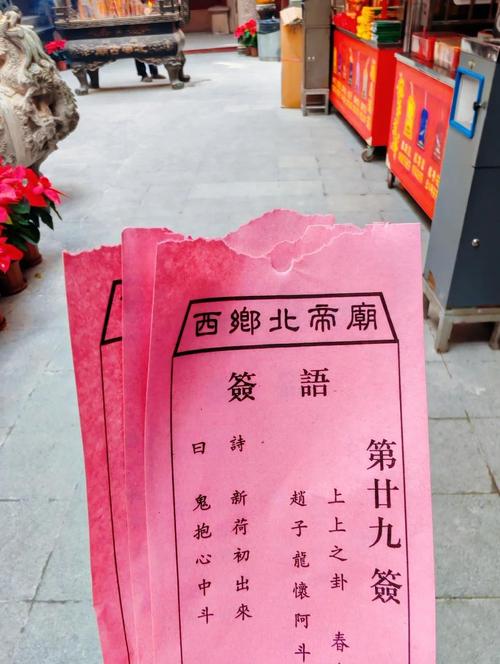 西鄉北帝廟
簽語
第廿九簽
上上之卦 春
趙子龍懷阿斗
詩 新荷初出來
曰 鬼抱心中斗